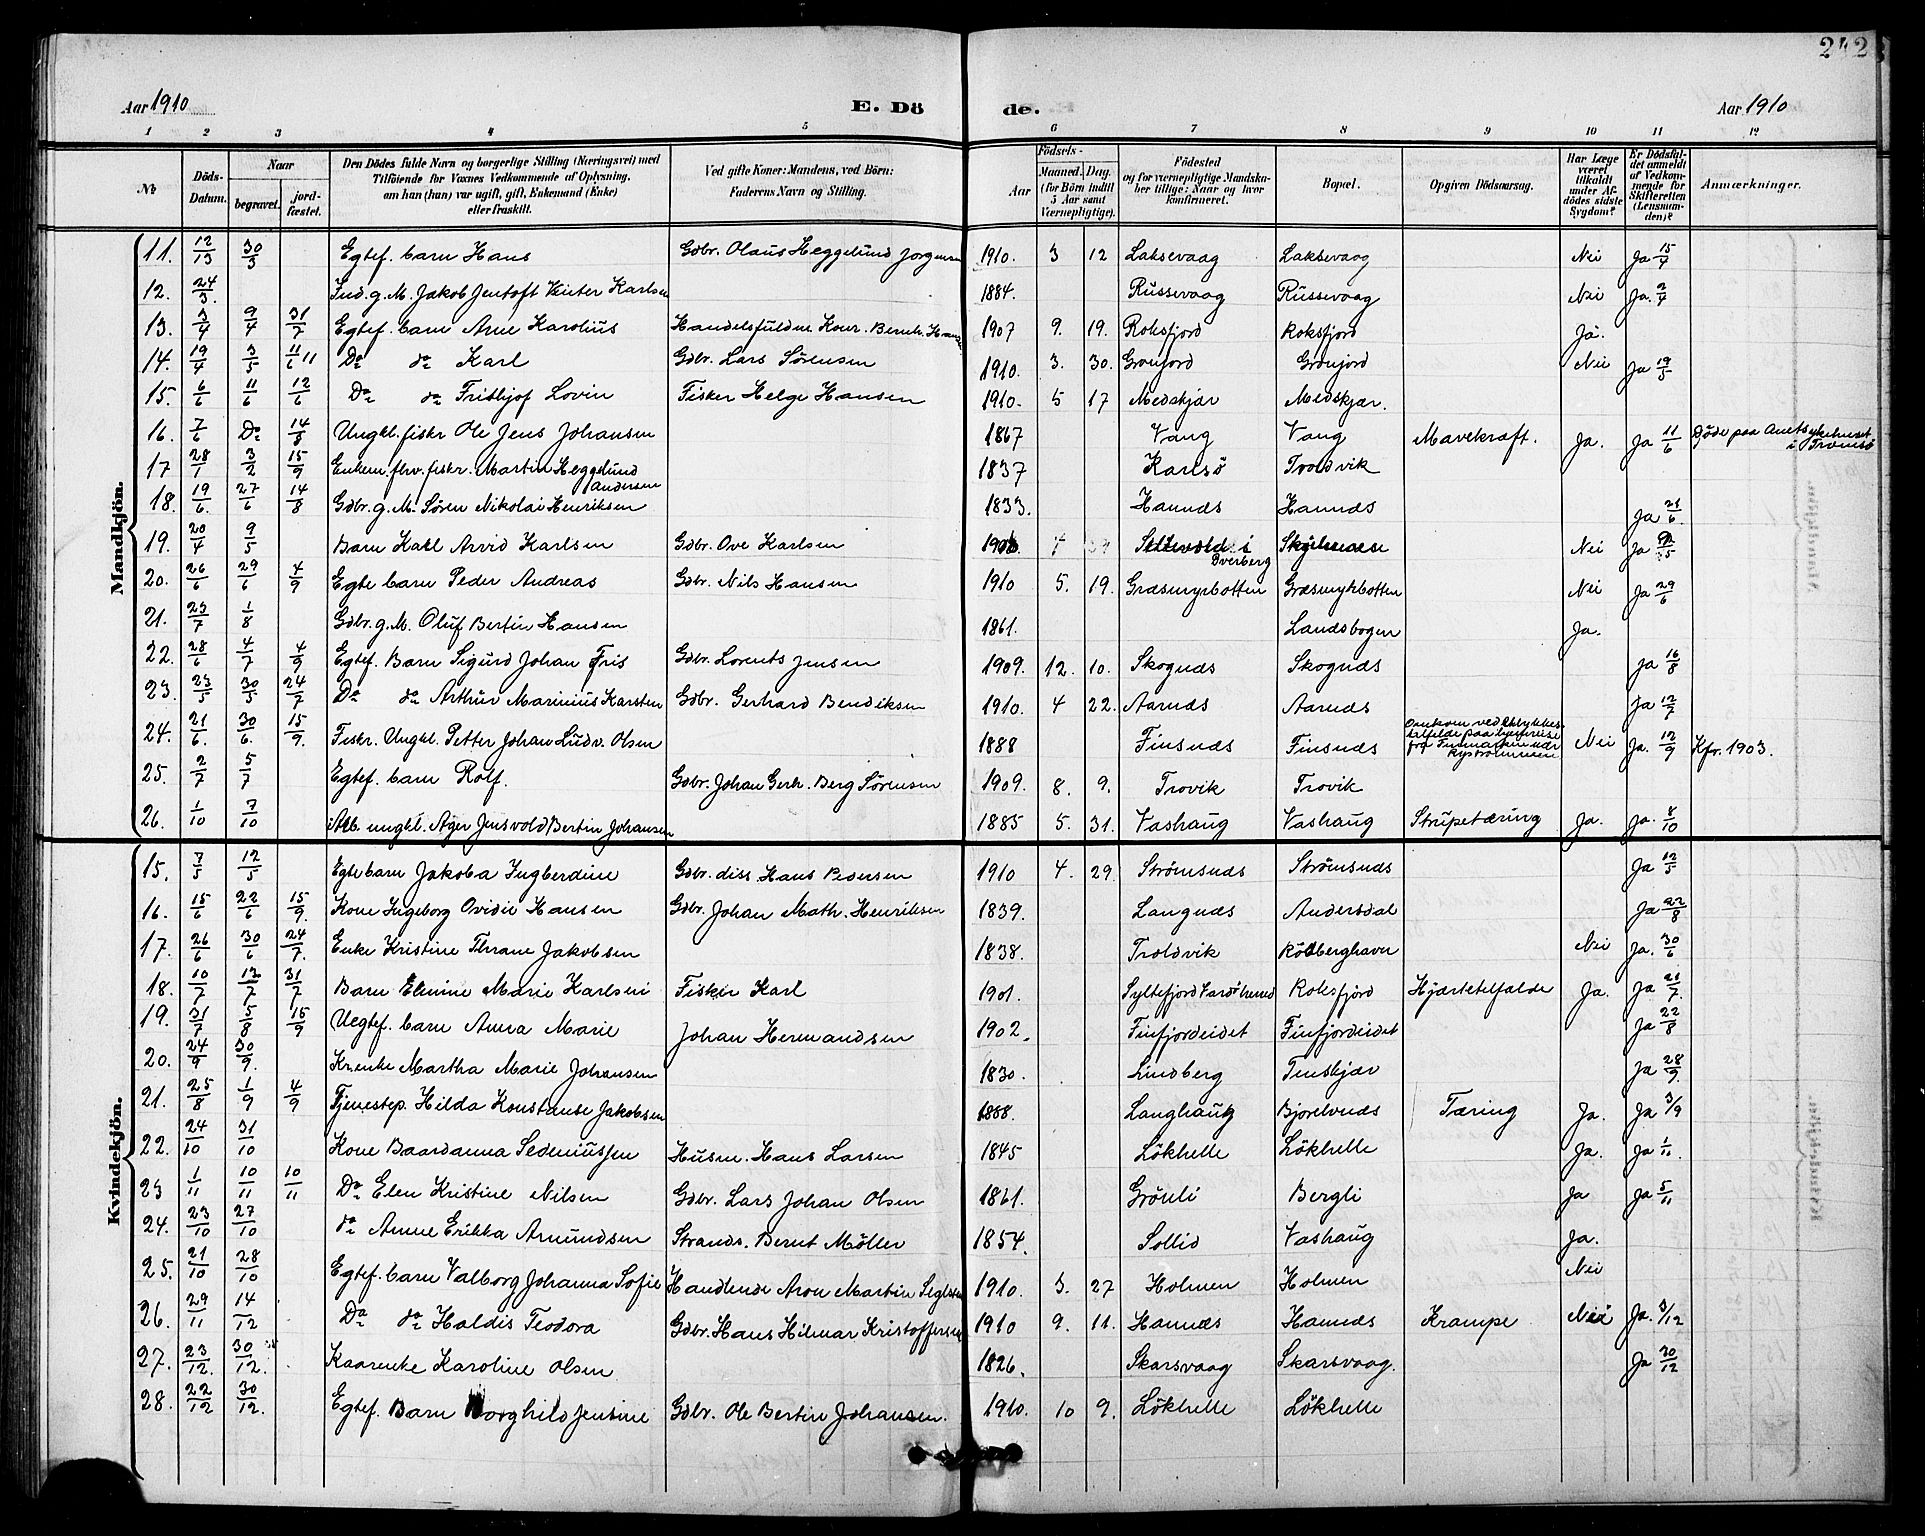 242
Aar 1910 E. Dö de. Aar 1910
1 2 3 4 5 6 7 8 9 10 11 12
No Döds-Datum. Naar begravet. jordfæstet. Den Dödes fulde Navn og borgerlige Stilling (Næringsvei) med Tilföiende for Voxnes Vedkommende af Oplysning, om han (hun) var ugift, gift, Enkemand (Enke) eller fraskilt. Ved gifte Koner: Mandens, ved Börn: Faderens Navn og Stilling. Födsels- Aar Maaned. Dag. (for Börn indtil 5 Aar samt Værnepligtige). Födested og for værnepligtige Mandskaber tillige: Naar og hvor konfirmeret. Bopæl. Opgiven Dödsaarsag. Har Læge været tilkaldt under Afdödes sidste Sygdom? Er Dödsfaldet anmeldt af Vedkommende for Skifteretten (Lensmanden)? Anmærkninger.
Mandkjön.
11. 12/13 30/3 Egtef. barn Hans Gdbr. Olaus Heggelund Jørgensen 1910. 3 12 Laksevaag Laksevaag Nei Ja 15/4
12. 24/3. Ind. g. M. Jakob Jentoft Winter Karlsen 1884. Russevaag Russevaag Nei Ja. 2/4
13. 3/4 9/4 31/7 Egtef. barn Arne Karolius Handelsfuldm. Konr. Bernh. 1907 9. 19. Roksfjord Roksfjord Ja.
14. 19/4 3/5 11/6 11 Do do Karl Gdbr. Lars Sørensen 1910. 3. 30. Grønjord Grønjord Nei Ja 19/5
15. 6/6 11/6 12/6 Do do Frithjof Lovin Fisker Helge Hansen 1910. 5 17 Medskjær Medskjær.
16. 7/6 Do 14/8 Ungkl. fiskr Ole Jens Johansen 1867 Vang Vang Mavekræft. Ja. Ja 11/6 Døde paa Amtsykehuset i Tromsø
17 28/1 3/2 15/9 Enkem. fhv. fiskr. Martin Heggelund Andersen 1837 Karlsö Troldvik
18. 19/6. 27/6 14/8 Gdbr. g. M. Søren Nikolai Henriksen 1833. Hannæs Hannæs Ja 21/6.
19. 20/4 9/5 Barn Karl Arvid Karlsen Gdbr. Ove Karlsen i Dverberg Nei Ja
20. 26/6 29/6 4/9 Egte barn Peder Andreas Gdbr. Nils Hansen 1910 5. 19. Græsmyrbotten Græsmyrbotten Nei Ja 29/6
21. 23/7 1/8 Gdbr. g. M. Oluf Bertin Hansen 1861. Landsbogen Ja.
22. 28/6 4/7 4/9 Egtef. Barn Sigurd Johan Fris Gdbr. Lorents Jensen 1909. 12. 10. Skognæs Skognæs Ja 16/8
23. 23/5 30/5 24/7 Do do Arthur Marinius Karsten Gdbr. Gerhard Bendiksen 1910. 4 22. Aarnæs Aarnæs Ja 12/7
24. 21/6. 30/6. 15/9. Fiskr. Ungkl. Petter Johan Ludv. Olsen 1888 Finsnæs Finsnæs Omkom ved Ulykkestilfælde paa hjemreise fra Finmarken Nei Ja. 12/9 Kfr. 1903.
25. 2/7 5/7 Egtef. barn Rolf. Gdbr. Johan Gerh. Berg Sørensen 1909. 8. 9. Trovik Trovik
26. 1/10 7/10 Arb. ungkl. Ager Jensvold Bertin Johansen 1885 5. 31. Vashaug Vashaug Strupetæring Ja. Ja. 8/10
Kvindekjön.
15. 7/5 12/5 Egte barn Jakoba Ingberdine Gdbr. diss. Hans Pedersen 1910 4. 29. Strömsnæs Strömsnæs Ja 12/5
16. 15/6 22/6 15/9. Kone Ingeborg Ovidie Hansen Gdbr. Johan Math. Henriksen 1839. Langnæs Andersdal Ja 22/8
17. 26/6 30/6 24/7. Enke Kristine Thrane Jakobsen 1838. Troldvik Rödberghavn Nei Ja. 30/6
18. 10/7 13/7 31/7 Barn Elenine Marie Karlsen Fisker Karl 1901. Syltefjord Roksfjord Hjærtetilfælde Ja. Ja 21/7.
19. 31/7 5/8 15/9 Uegtef. barn Anna Marie Johan Hermandsen 1902. Finfjordeidet Finfjordeidet Ja 22/8
20. 24/9 30/9. Kr. enke Martha Marie Johansen 1830. Lindberg Tenskjær Ja 28/9.
21. 25/8 1/9 4/9 Tjenestep. Hilda Konstanse Jakobsen 1888. Langhaug Bjorelvnæs Tæring Ja. Ja 3/9
22. 24/10 31/10 Kone Baardanna Sedeniussen Husm. Hans Larsen 1845 Lökhelle Lökhelle Ja. Ja 1/11.
23 1/11 10/11 10/11 Do Elen Kristine Nilsen Gdbr. Lars Johan Olsen 1861. Grönli Bergli Ja Ja 5/11
24. 23/10 27/10 do Anne Erikka Amundsen Strands. Bernt Möller 1854. Sollid Vashaug Ja.
25. 21/10 28/10 Egtef. barn Valborg Johanna Sofie Handlende Aron Martin 1910. 3. 27 Holmen Holmen Nei
26. 29/11 14/12 Do do Haldis Teodora Gdbr. Hans Hilmar Kristoffersen 1910 9. 11. Hannæs Hannæs Krampe Nei Ja. 3/12
27. 23/12. 30/12. Kaarenke Karoline Olsen 1826. Skarsvaag Skarsvaag. Ja 30/12
28. 22/12 30/12. Egtef. Barn Borghild Jensine Gdbr. Ole Bertin Johansen. 1910. 10 9. Lökhelle Lökhelle